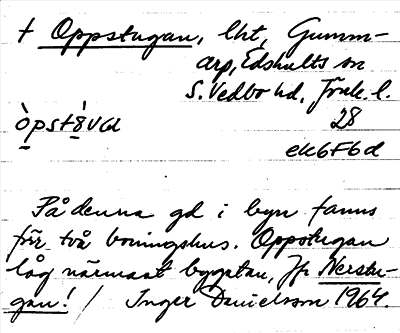 † Oppstugan, lht, Gumm-
arp, Edshults sn
S. Vedbo hd, Jönk. l.
òpstὸ8va 28
ek6F6d
På denna gd i byn fanns
förr två boningshus. Oppstugan
låg närmast bygatan, Jfr Nerstu-
gan! / Inger Danielsson 1964.